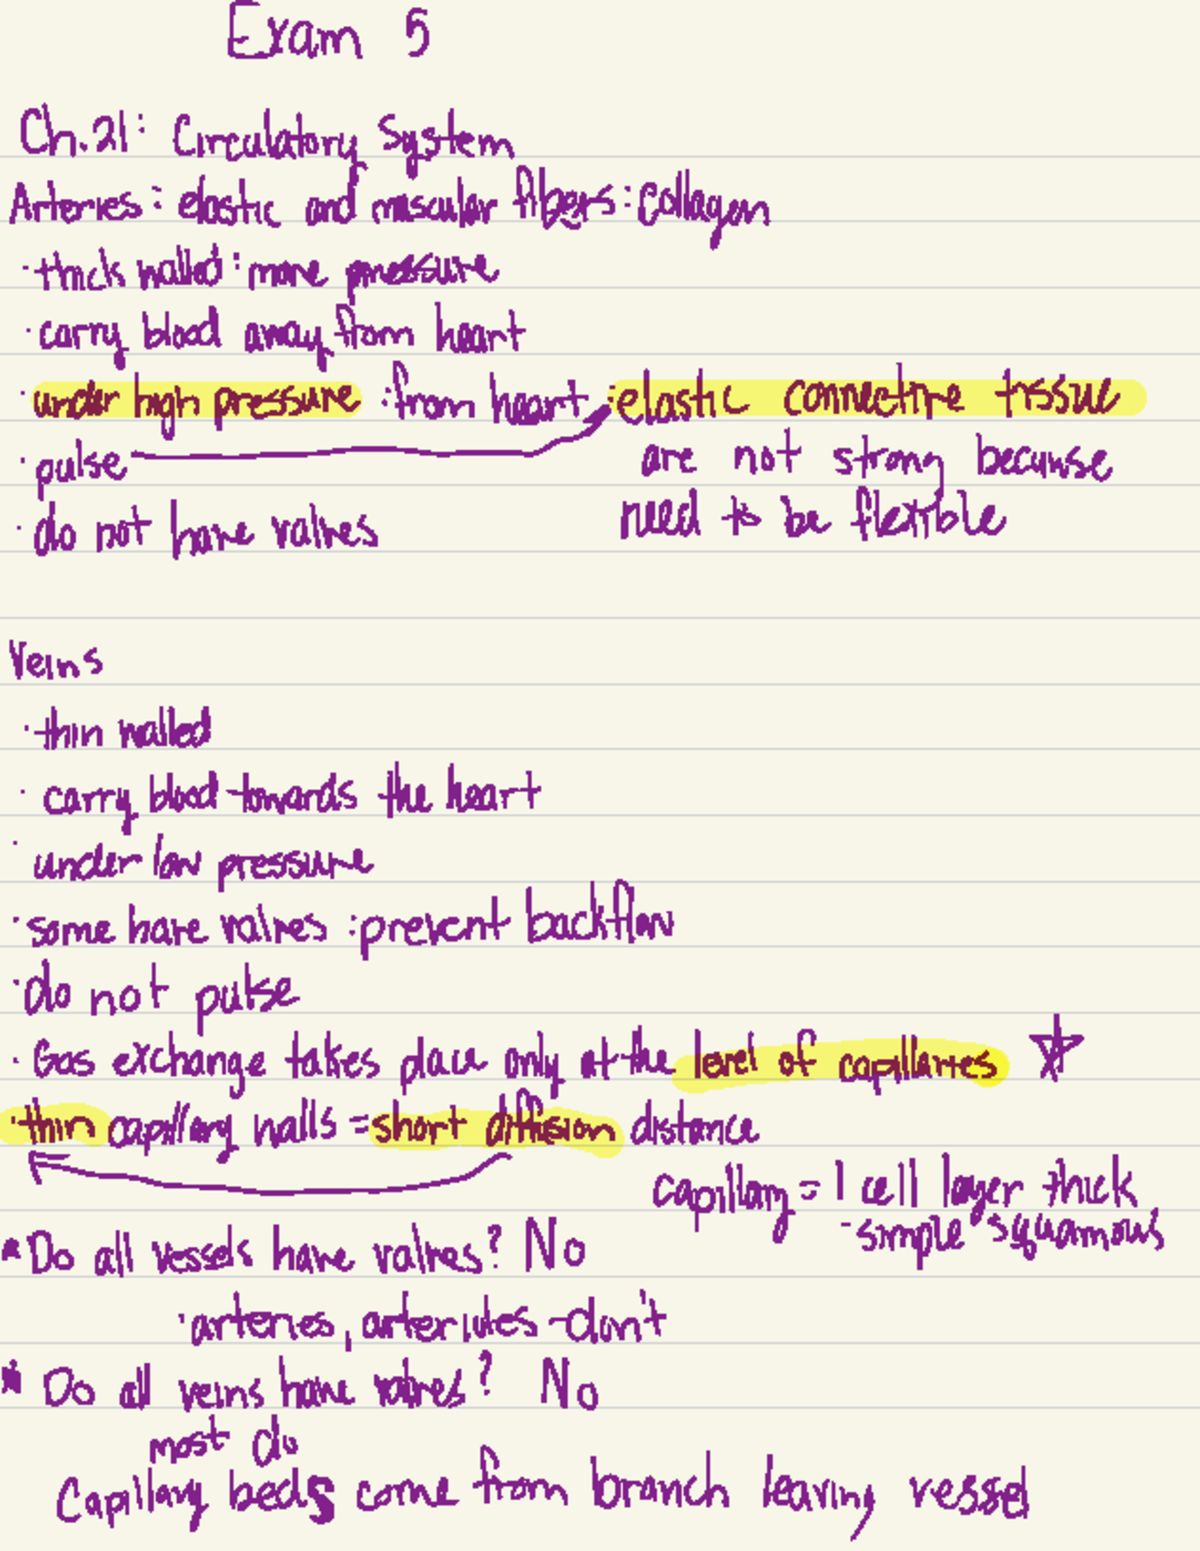 Exam 5
Ch.21: Circulatory System
Arteries: elastic and muscular fibers: collagen
· thick walled: more pressure
· carry blood away from heart
· under high pressure : from heart : elastic connective tissue
· pulse are not strong because
· do not have valves need to be flexible
Veins
· thin walled
· carry blood towards the heart
· under low pressure
· some have valves : prevent backflow
· do not pulse
· Gas exchange takes place only at the level of capillaries ☆
· thin capillary walls = short diffusion distance
capillary = 1 cell layer thick
- simple squamous
* Do all vessels have valves? No
· arteries, arterioles - don't
* Do all veins have valves? No
most do
Capillary beds come from branch leaving vessel